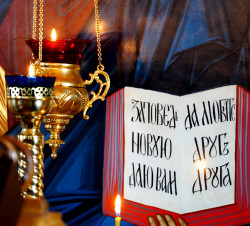 ЗАПОВЕДЬ
НОВУЮ
ДАЮ ВАМ
ДА ЛЮБИТЕ
ДРУГЪ
ДРУГА